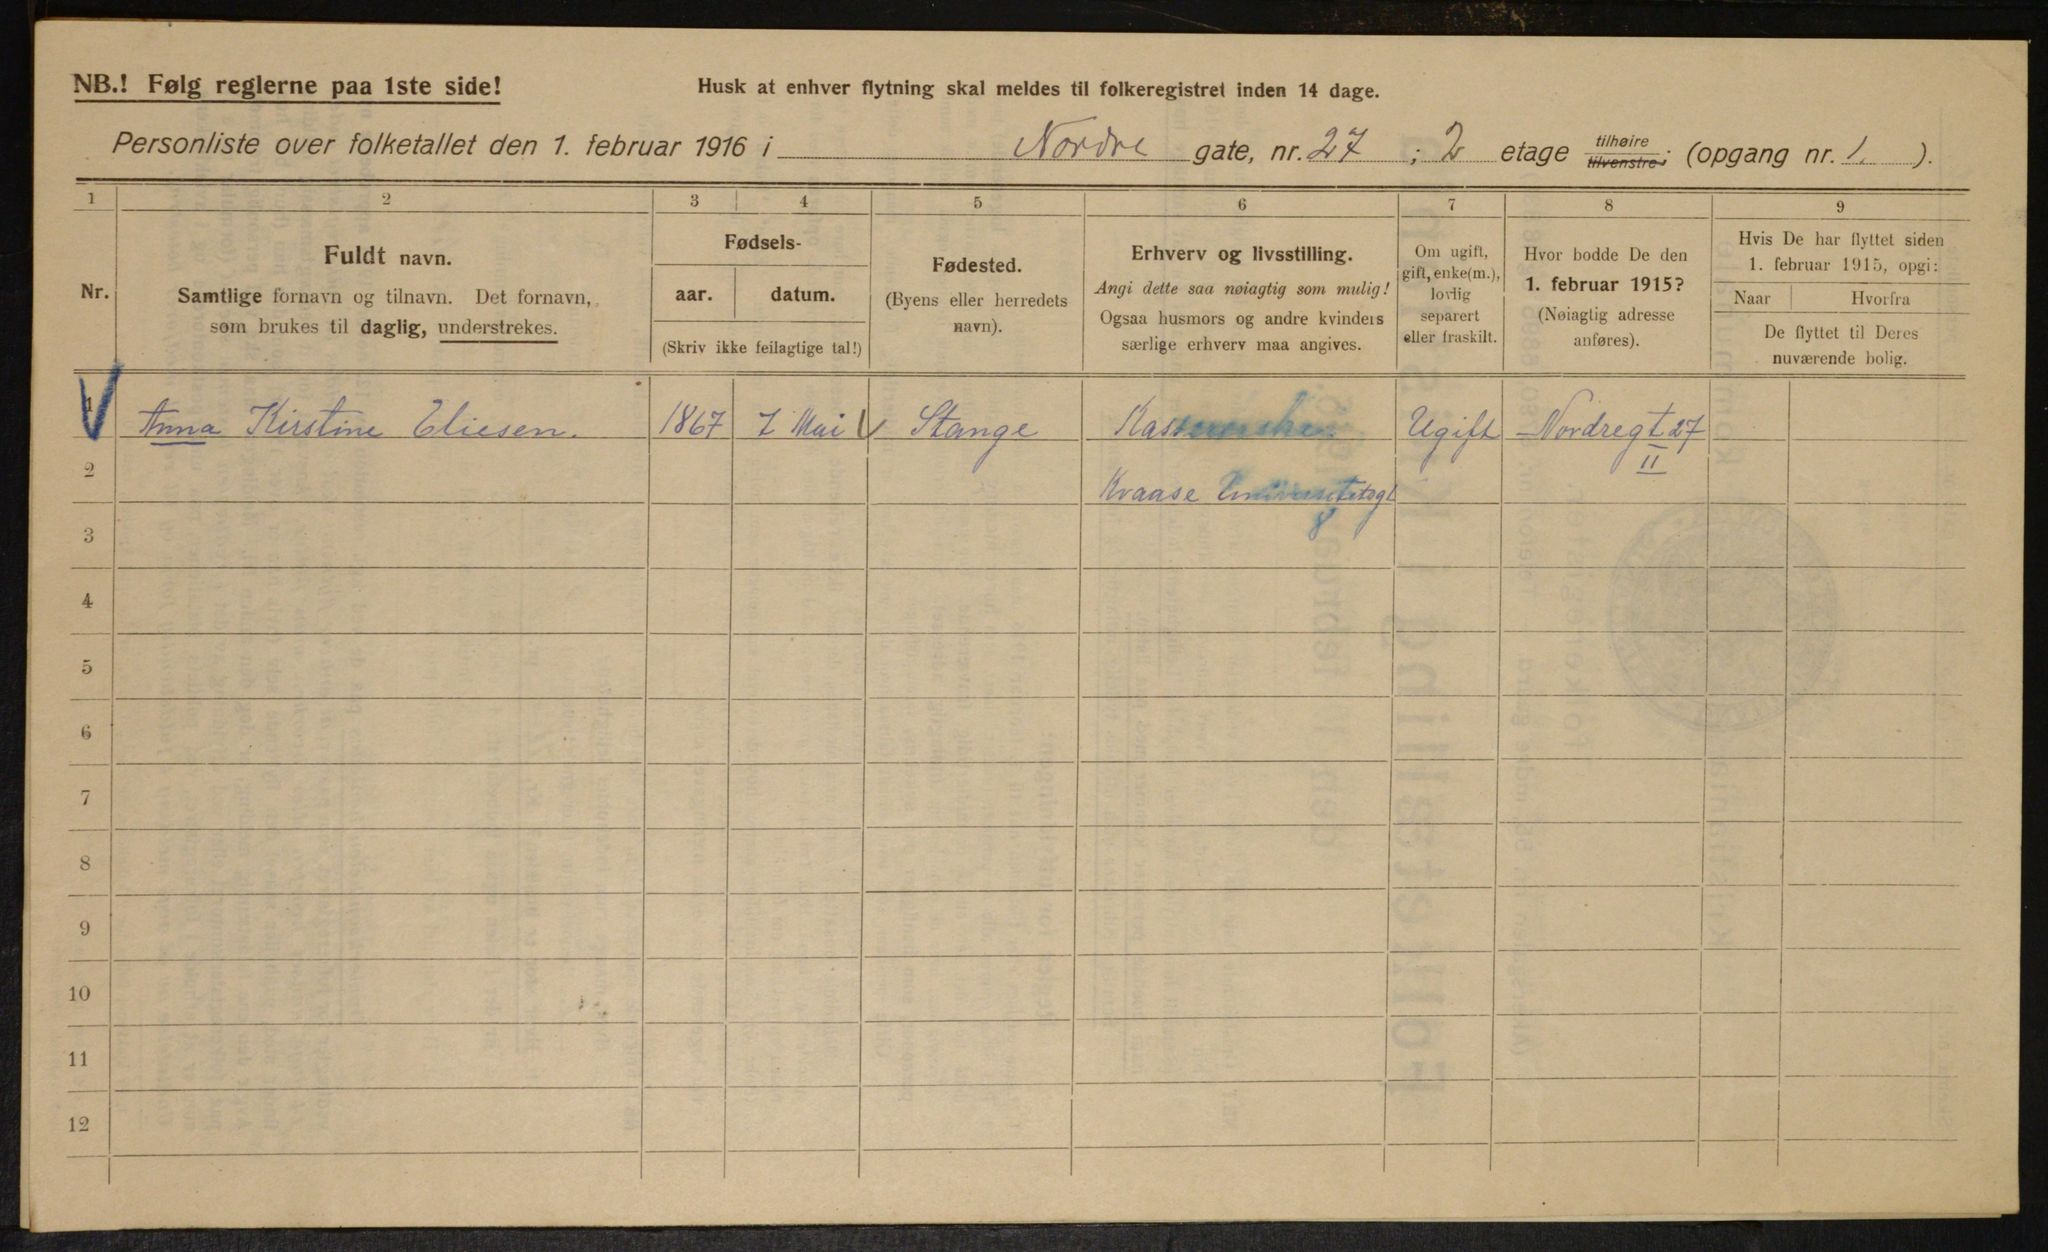 NB.! Følg reglerne paa 1ste side!
Husk at enhver flytning skal meldes til folkeregistret inden 14 dage.
Personliste over folketallet den 1. februar 1916 i Nordre gate, nr. 27 ; 2 etage tilhøire tilvenstre ; (opgang nr. 1. ).
1 2 3 4 5 6 7 8 9
Nr.
Fuldt navn.
Samtlige fornavn og tilnavn. Det fornavn,
som brukes til daglig, understrekes.
Fødsels-
aar. datum.
(Skriv ikke feilagtige tal!)
Fødested.
(Byens eller herredets
navn).
Erhverv og livsstilling.
Angi dette saa nøiagtig som mulig!
Ogsaa husmors og andre kvinders
særlige erhverv maa angives.
Om ugift,
gift, enke(m.),
lovlig
separert
eller fraskilt.
Hvor bodde De den
1. februar 1915?
(Nøiagtig adresse
anføres).
Hvis De har flyttet siden
1. februar 1915, opgi:
Naar Hvorfra
De flyttet til Deres
nuværende bolig.
1 Anna Kirstine Eliesen. 1867 7 Mai Stange Ugift Nordregt 27
II
2 Kvaase Universitetsgt
8
3
4
5
6
7
8
9
10
11
12